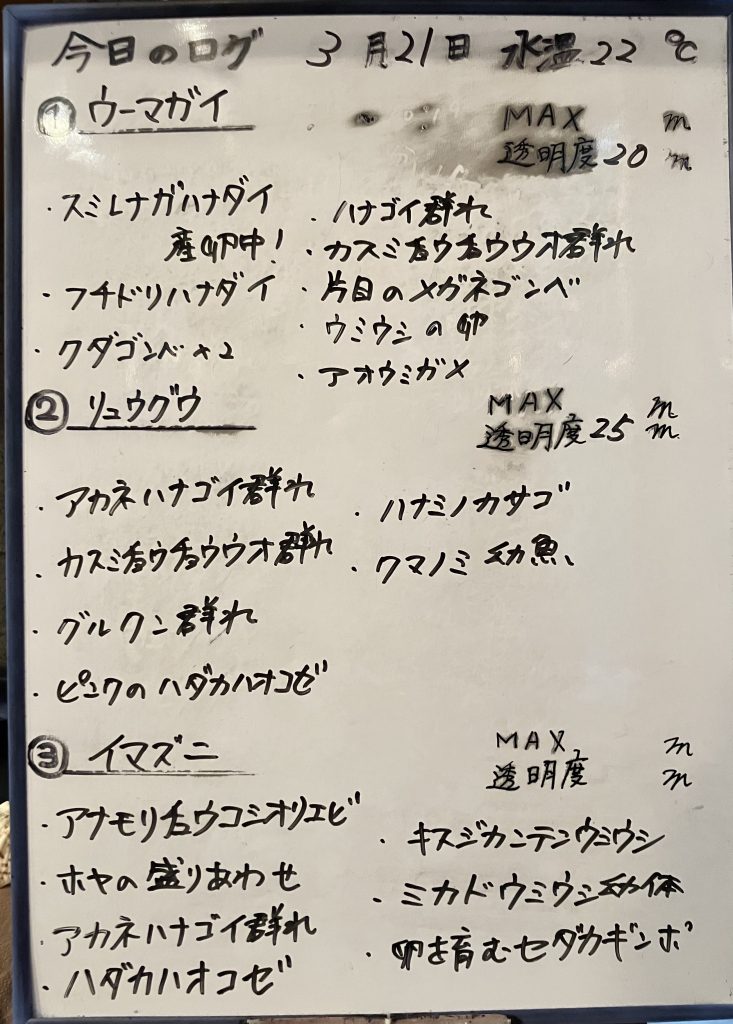 今日のログ 3月21日 水温22℃
① ウーマガイ
MAX m
透明度20m
・スミレナガハナダイ
産卵中!
・フチドリハナダイ
・クダゴンベ×2
・ハナゴイ群れ
・カスミチョウチョウウオ群れ
・片目のメガネゴンベ
・ウミウシの卵
・アオウミガメ
② リュウグウ
MAX m
透明度25m
・アカネハナゴイ群れ
・カスミチョウチョウウオ群れ
・グルクン群れ
・ピンクのハダカハオコゼ
・ハナミノカサゴ
・クマノミ幼魚
③ イマズニ
MAX m
透明度 m
・アナモリチョウコシオリエビ
・ホヤの盛りあわせ
・アカネハナゴイ群れ
・ハダカハオコゼ
・キスジカンテンウミウシ
・ミカドウミウシ幼体
・卵を育むセダカギンポ